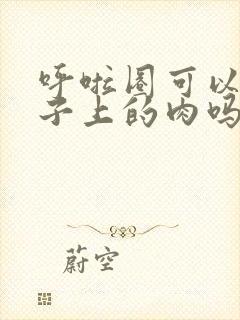 呼啦圈可以
子上的肉吗
蔚空